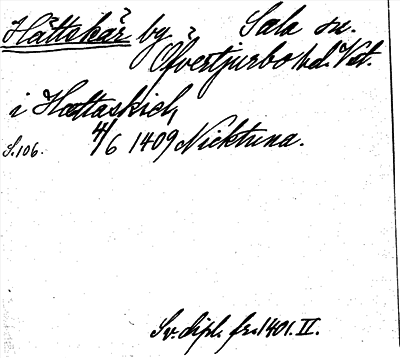 Hättskär by, Sala sn.
Öfvertjurbo hd. Vst.
i Hættaskich,
S. 106. 4/6 1409 Nicktuna.
Sv. dipl. fr. 1401. II.